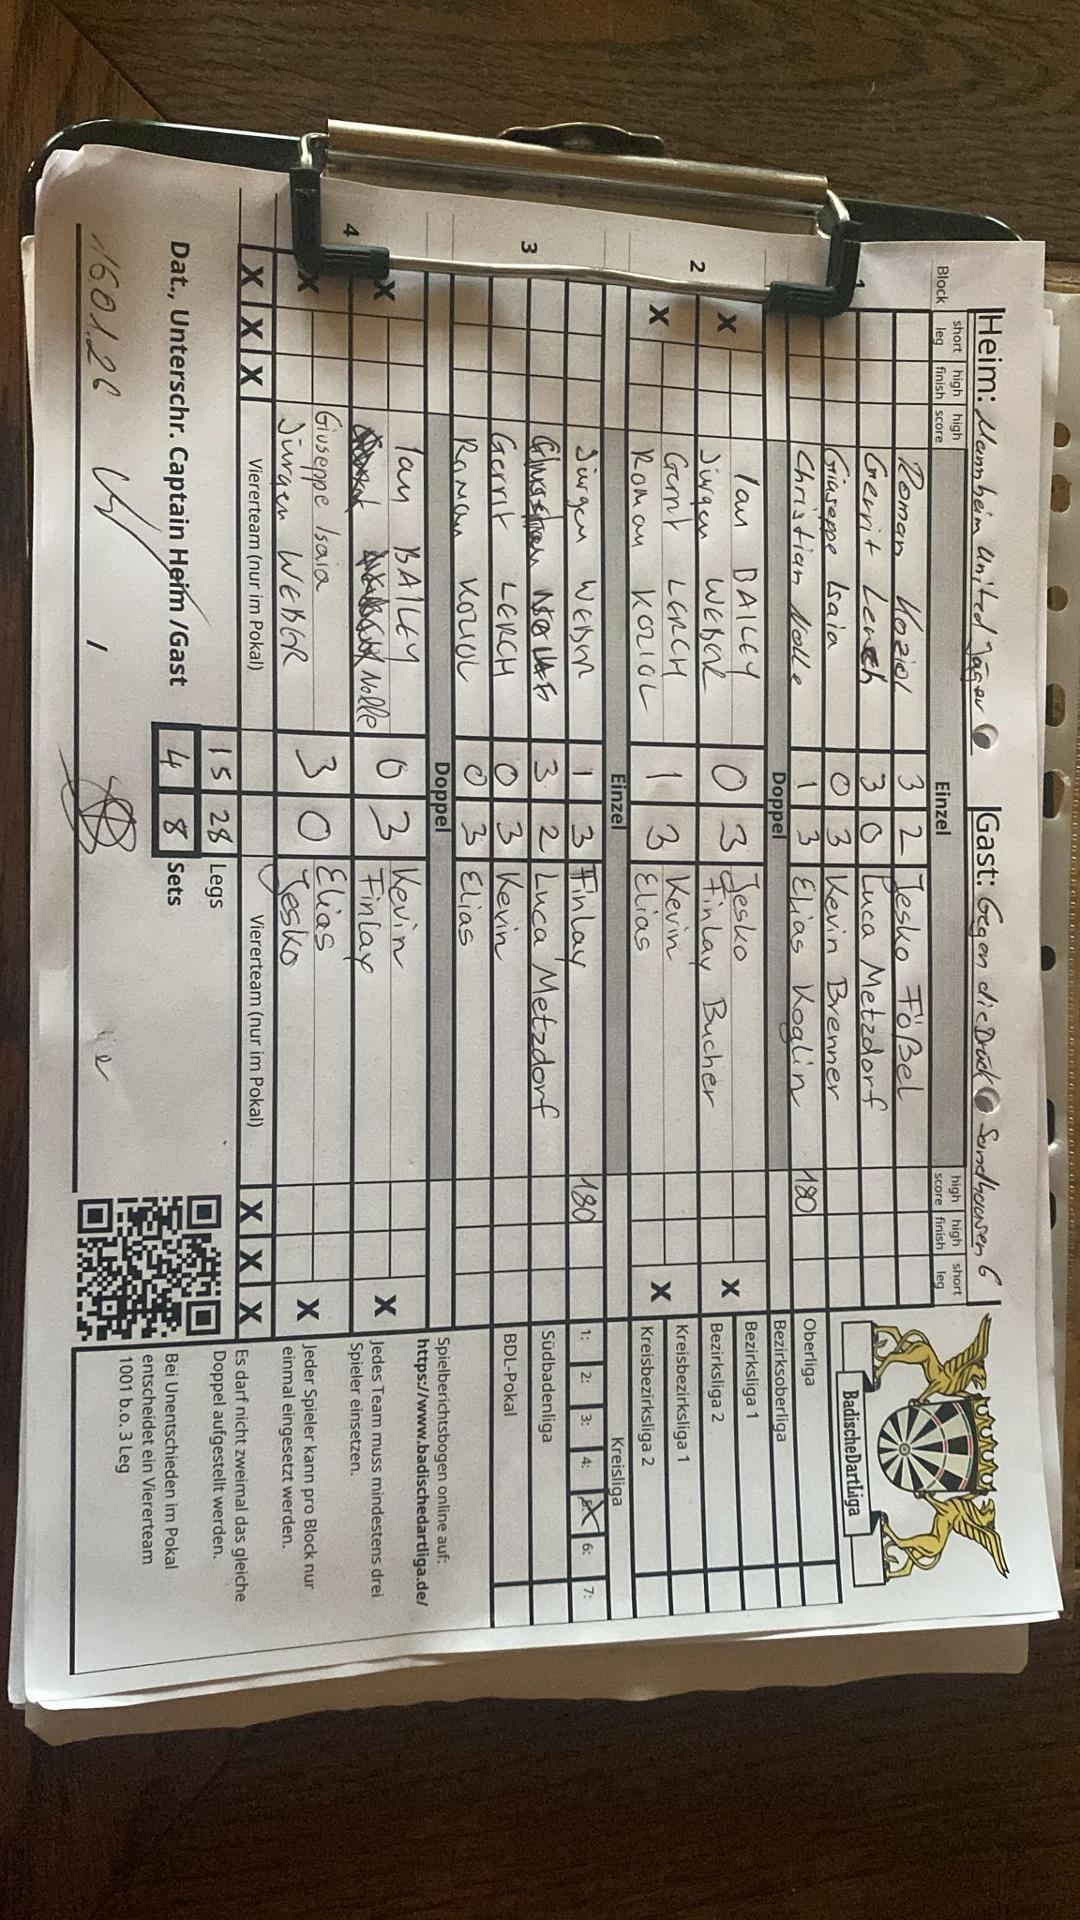 Heim: Mannheim United Jäger Gast: Gegen die Druck Sandhausen 6
Block short leg high finish high score Einzel high score high finish short leg
1 Roman Koziol 3 2 Jesko Fößel
Gerrit Lerch 3 0 Luca Metzdorf
Giuseppe Isaia 0 3 Kevin Brenner
Christian Nolle 1 3 Elias Koglin 180
Doppel
2 X Ian BAILEY Jürgen WEBER 0 3 Jesko Finlay Bucher X
X Gerrit LERCH Roman KOZIOL 1 3 Kevin Elias X
Einzel
3 Jürgen WEBER 1 3 Finlay 180
3 2 Luca Metzdorf
Gerrit LERCH 0 3 Kevin
Roman KOZIOL 0 3 Elias
Doppel
4 X Ian BAILEY Nolle 0 3 Kevin Finlay X
X Giuseppe Isaia Jürgen WEBER 3 0 Elias Jesko X
X X X Viererteam (nur im Pokal) Viererteam (nur im Pokal) X X X
15 28 Legs
4 8 Sets
Dat., Unterschr. Captain Heim /Gast
16.01.26 /
BadischeDartLiga
Oberliga
Bezirksoberliga
Bezirksliga 1
Bezirksliga 2
Kreisbezirksliga 1
Kreisbezirksliga 2
Kreisliga
1: 2: 3: 4: X 6: 7:
Südbadenliga
BDL-Pokal
Spielberichtsbogen online auf:
https://www.badischedartliga.de/
Jedes Team muss mindestens drei
Spieler einsetzen.
Jeder Spieler kann pro Block nur
einmal eingesetzt werden.
Es darf nicht zweimal das gleiche
Doppel aufgestellt werden.
Bei Unentschieden im Pokal
entscheidet ein Viererteam
1001 b.o. 3 Leg